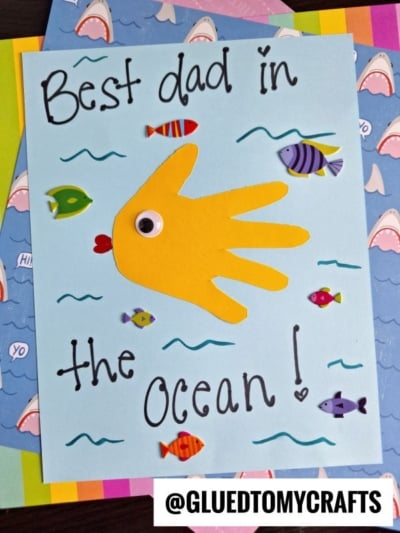 Best dad in
YO
HI!
YO
the
ocean!
@GLUEDTOMYCRAFTS